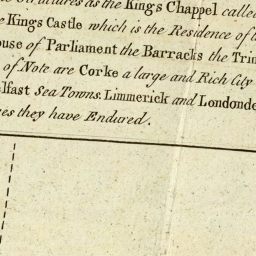 as the Kings Chapel called
Kings Castle which is the Residence of
of Parliament the Barracks the
of Note are Corke a large and Rich City
Sea Towns. Limmerick and
they have Endured.